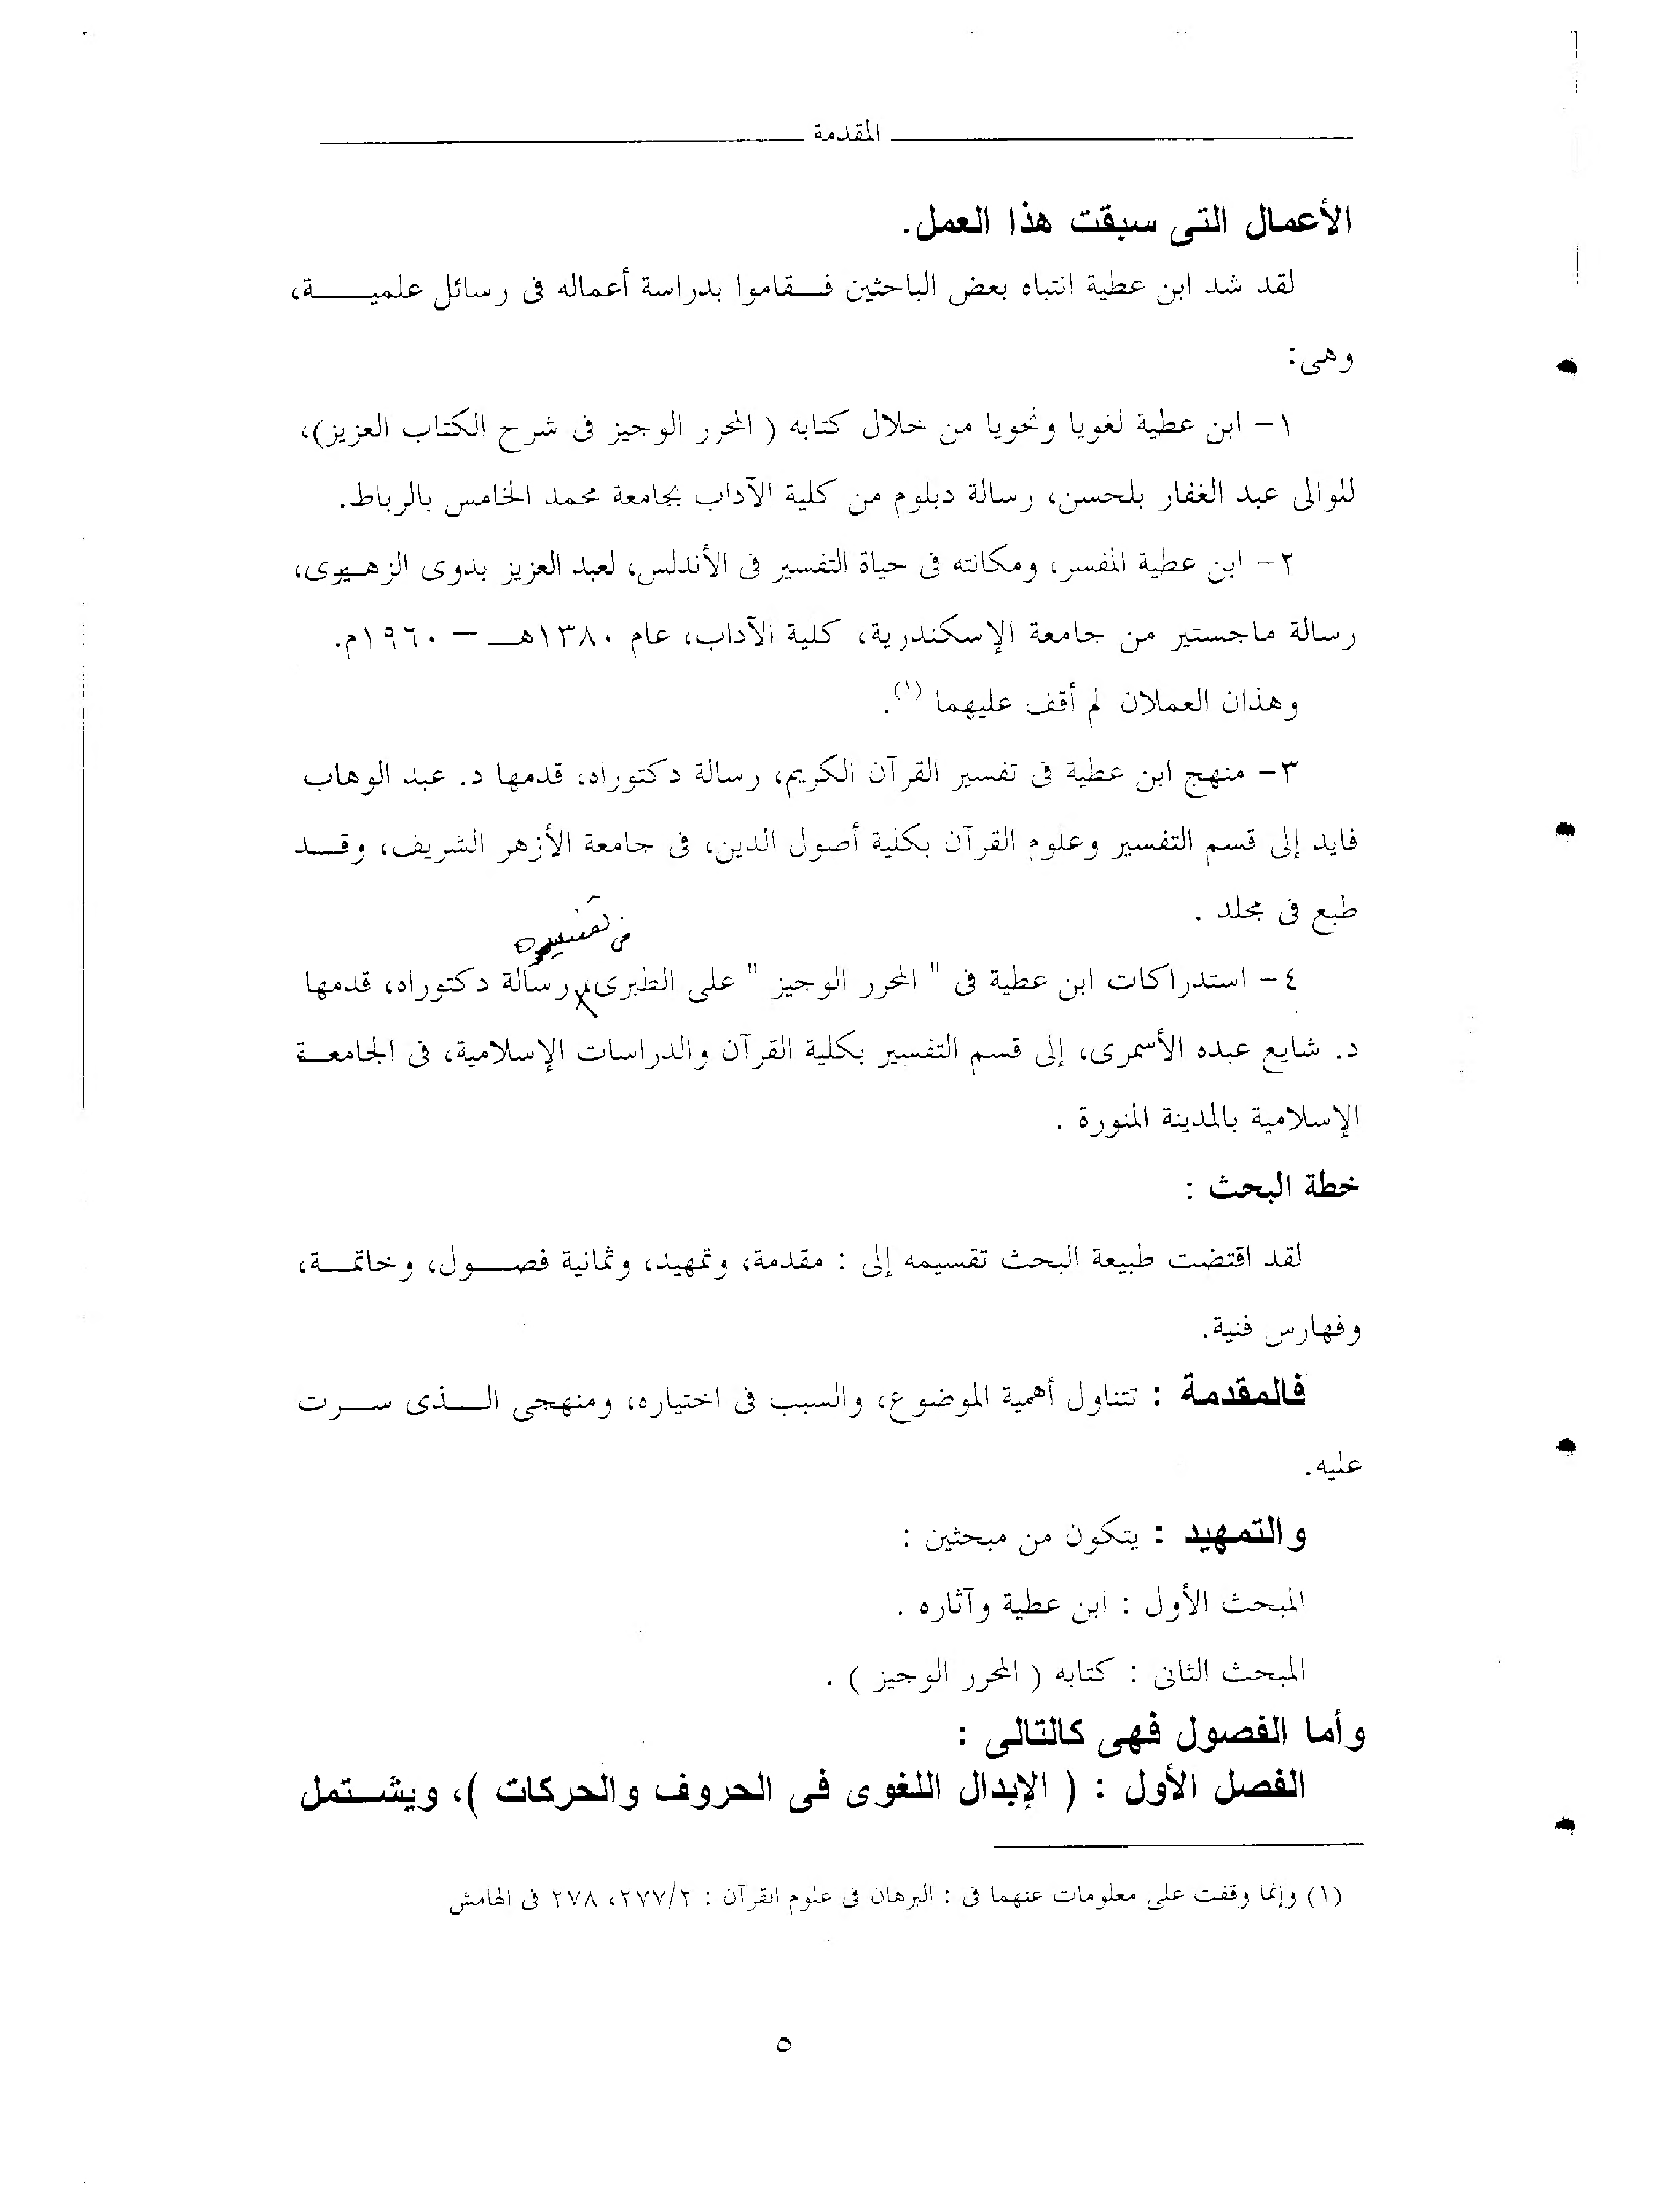 المقدمة
الأعمال التى سبقت هذا العمل.
لقد شد ابن عطية انتباه بعض الباحثين فقاموا بدراسة أعماله فى رسائل علمية،
وهى:
١- ابن عطية لغويا ونحويا من خلال كتابه ( المحرر الوجيز فى شرح الكتاب العزيز)،
للوالى عبد الغفار بلحسن، رسالة دبلوم من كلية الآداب بجامعة محمد الخامس بالرباط.
٢- ابن عطية المفسر، ومكانته فى حياة التفسير فى الأندلس، لعبد العزيز بدوى الزهيرى،
رسالة ماجستير من جامعة الإسكندرية، كلية الآداب، عام ١٣٨٠هـ – ١٩٦٠م.
وهذان العملان لم أقف عليهما (١).
٣- منهج ابن عطية فى تفسير القرآن الكريم، رسالة دكتوراه، قدمها د. عبد الوهاب
فايد إلى قسم التفسير وعلوم القرآن بكلية أصول الدين، فى جامعة الأزهر الشريف، وقد
طبع فى مجلد .
فى تفسيره
٤- استدراكات ابن عطية فى " المحرر الوجيز " على الطبرى، رسالة دكتوراه، قدمها
د. شايع عبده الأسمرى، إلى قسم التفسير بكلية القرآن والدراسات الإسلامية، فى الجامعة
الإسلامية بالمدينة المنورة .
خطة البحث :
لقد اقتضت طبيعة البحث تقسيمه إلى : مقدمة، وتمهيد، وثمانية فصول، وخاتمة،
وفهارس فنية.
فالمقدمة : تتناول أهمية الموضوع، والسبب فى اختياره، ومنهجى الذى سرت
عليه.
والتمهيد : يتكون من مبحثين :
المبحث الأول : ابن عطية وآثاره .
المبحث الثانى : كتابه ( المحرر الوجيز ) .
وأما الفصول فهى كالتالى :
الفصل الأول : ( الإبدال اللغوى فى الحروف والحركات )، ويشتمل
(١) وإنما وقفت على معلومات عنهما فى : البرهان فى علوم القرآن : ٢٧٧/٢، ٢٧٨ فى الهامش
٥